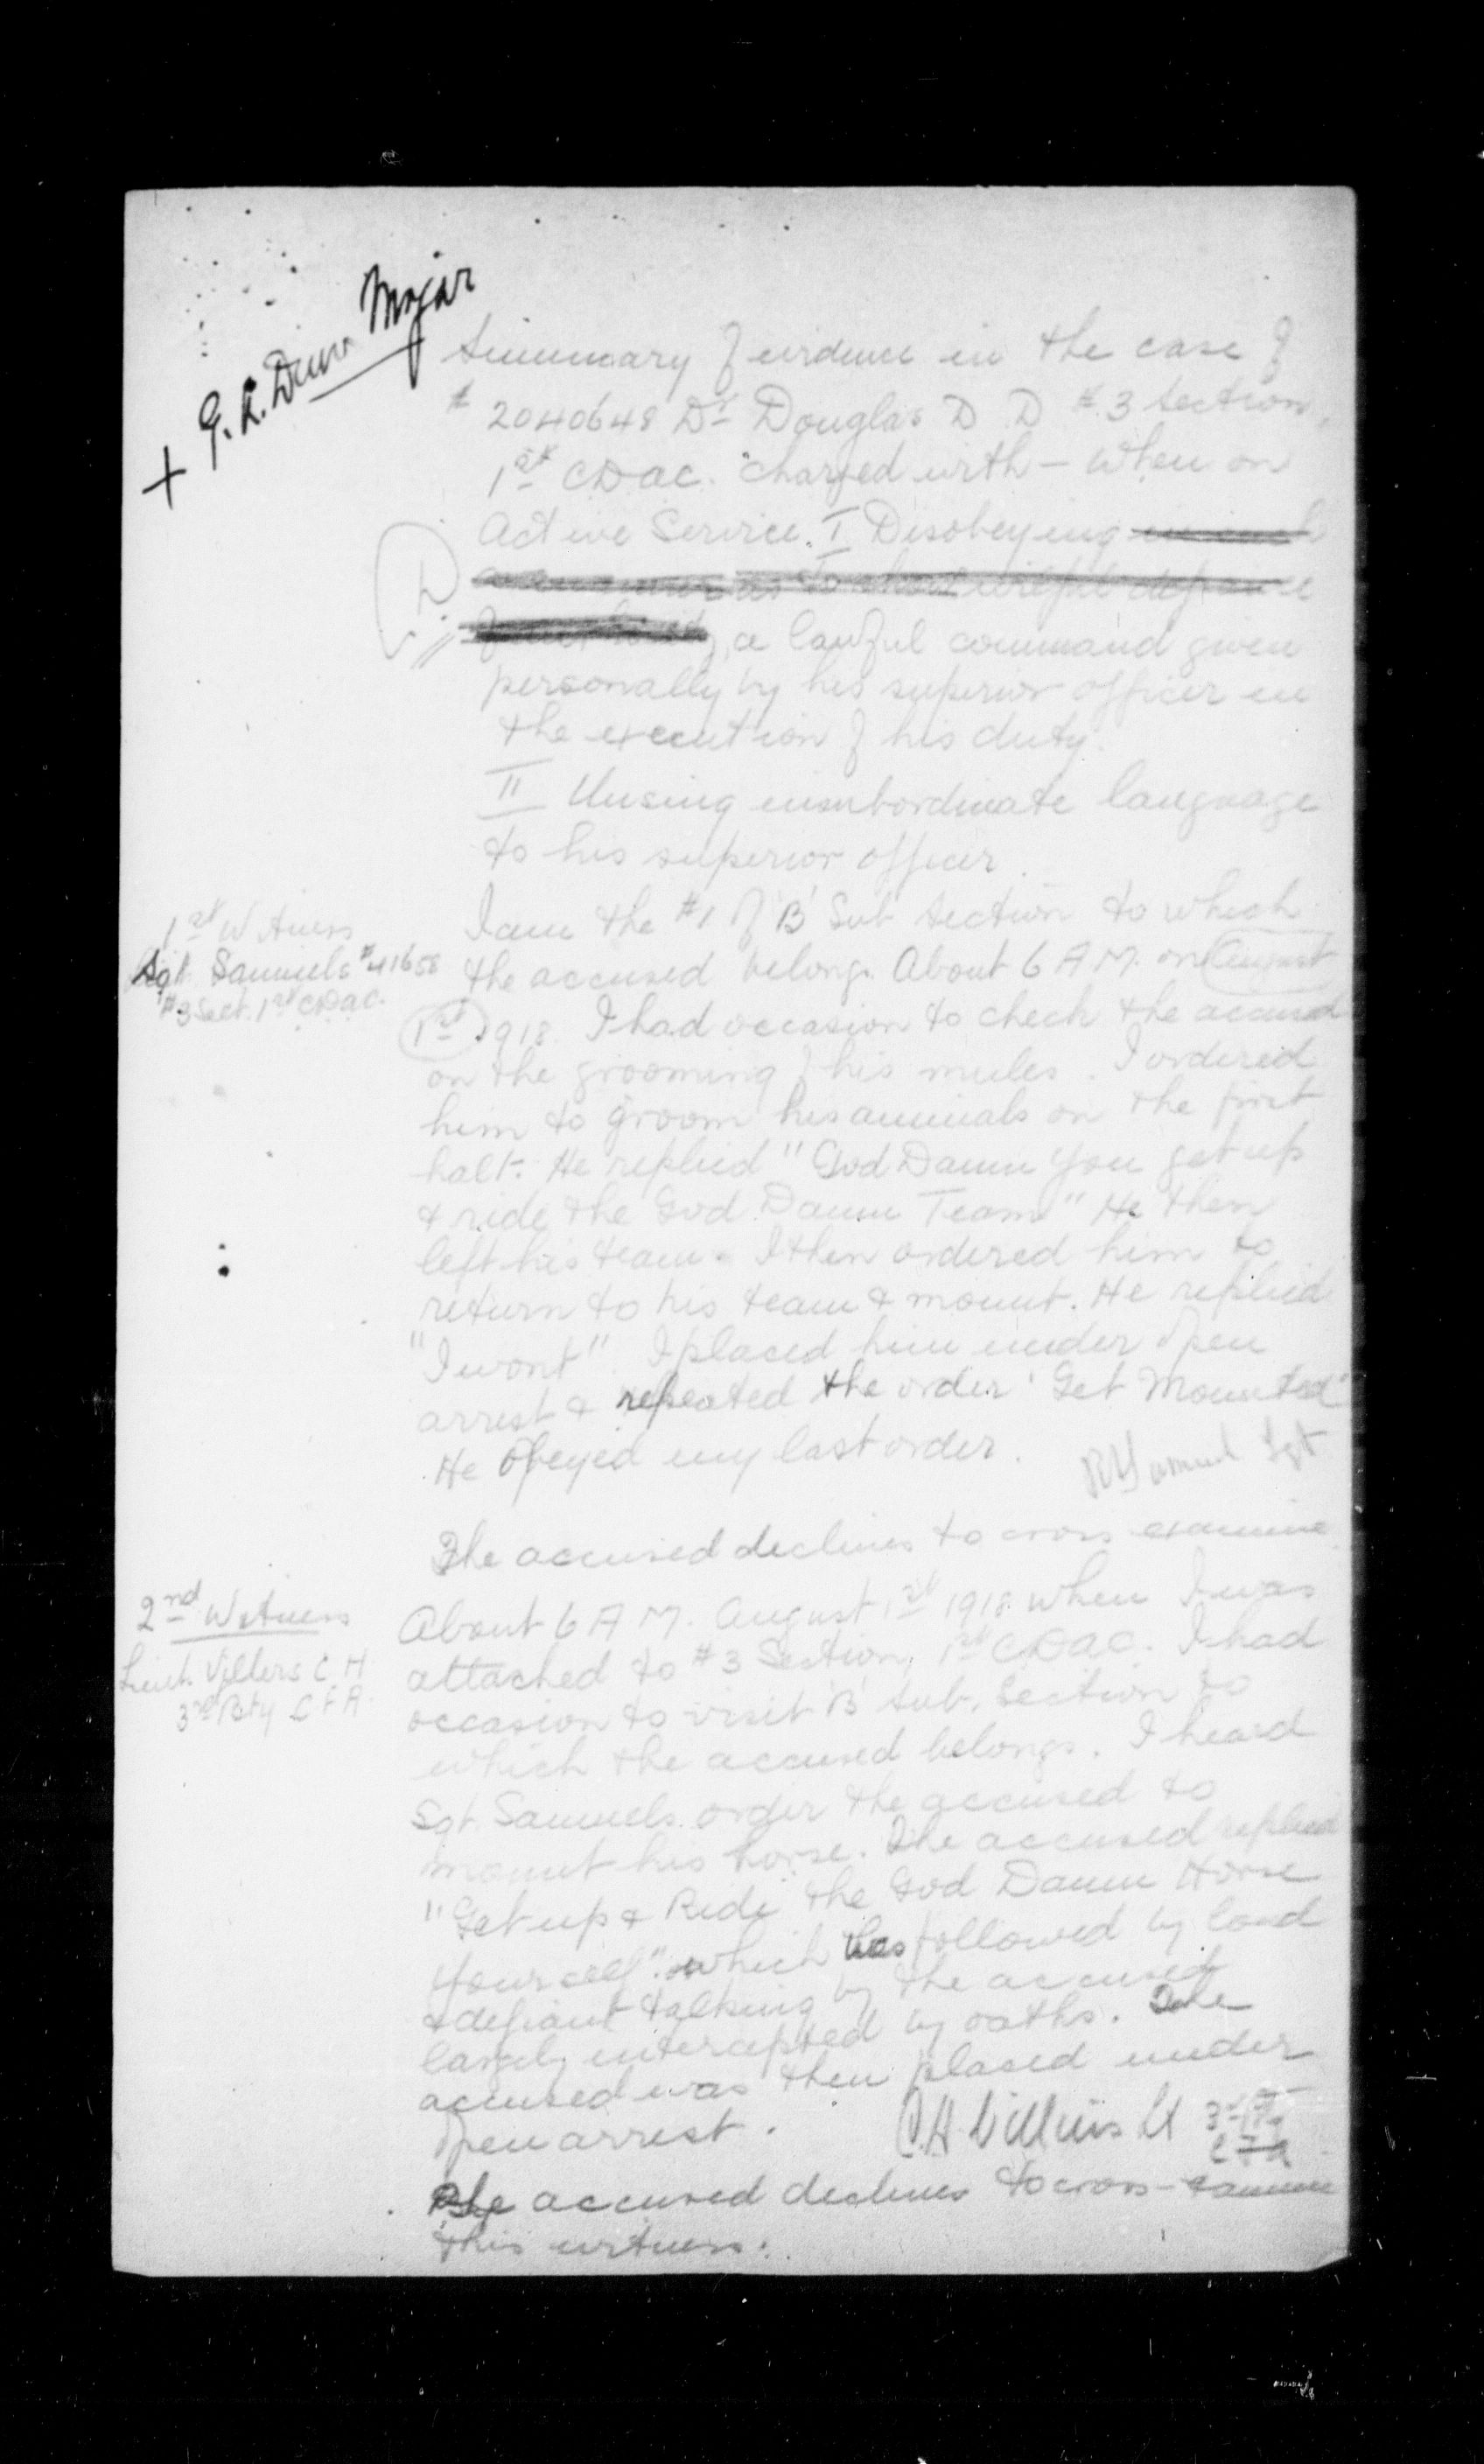 Major
+ G. L.
Summary of evidence in the case of
# 2040648 Dr Douglas D D #3 Section,
1st CDAC. charged with - When on
Active Service. I Disobeying in such
as to show wilful defiance
of authority, a lawful command given
personally by his superior officer in
the execution of his duty.
II Unsing insubordinate language
to his superior officer.
1st Witness
Sgt. Samuels #41658
#3 Sect. 1st CDAC.
I am the #1 of 'B' Sub Section to which
the accused belongs. About 6 AM. on August
1st 1918. I had occasion to check the accused
on the grooming of his mules. I ordered
him to groom his animals on the first
halt. He replied "God Damn you get up
& ride the God Damn Team" He then
left his team. I then ordered him to
return to his team & mount. He replied
"I wont". I placed him under open
arrest & repeated the order 'Get Mounted'
He obeyed my last order.
Sgt
The accused declines to cross examine
2nd Witness
Lieut. C H
3rd Bty CFA
About 6 AM. August 1st 1918 when I was
attached to #3 Section, 1st CDAC. I had
occasion to visit 'B' Sub. Section to
which the accused belongs. I heard
Sgt. Samuels order the accused to
mount his horse. The accused replied
"Get up & Ride the God Damn Horse
yourself". which was followed by loud
& defiant talking by the accused
largely intercepted by oaths. The
accused was then placed under
open arrest.
C.H. Lt 3rd Bty
CFA
The accused declines to cross-examine
this witness.